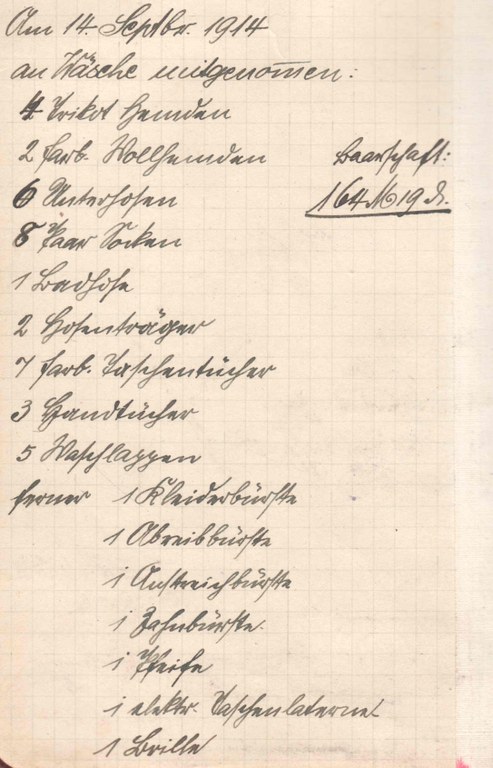 Am 14. Septbr. 1914
an Wäsche mitgenom̅en:
4 Trikot Hemden
2 farb. Wollhemden
Baarschaft:
6 Unterhosen
164 M 19 d.
8 Paar Socken
1 Badhose
2 Hosenträger
7 farb. Taschentücher
3 Handtücher
5 Waschlappen
ferner 1 Kleiderbürste
1 Abreibbürste
1 Anstreichbürste
1 Zahnbürste.
1 Pfeife
1 elektr. Taschenlaterne
1 Brille